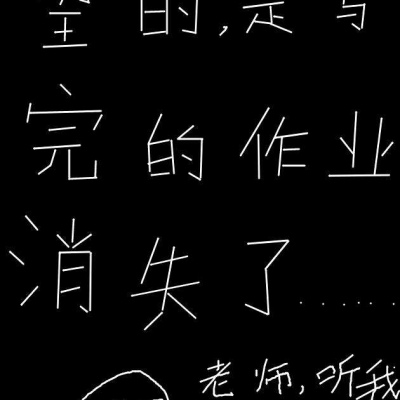 的,是写
完的作业
消失了......
老师,听我